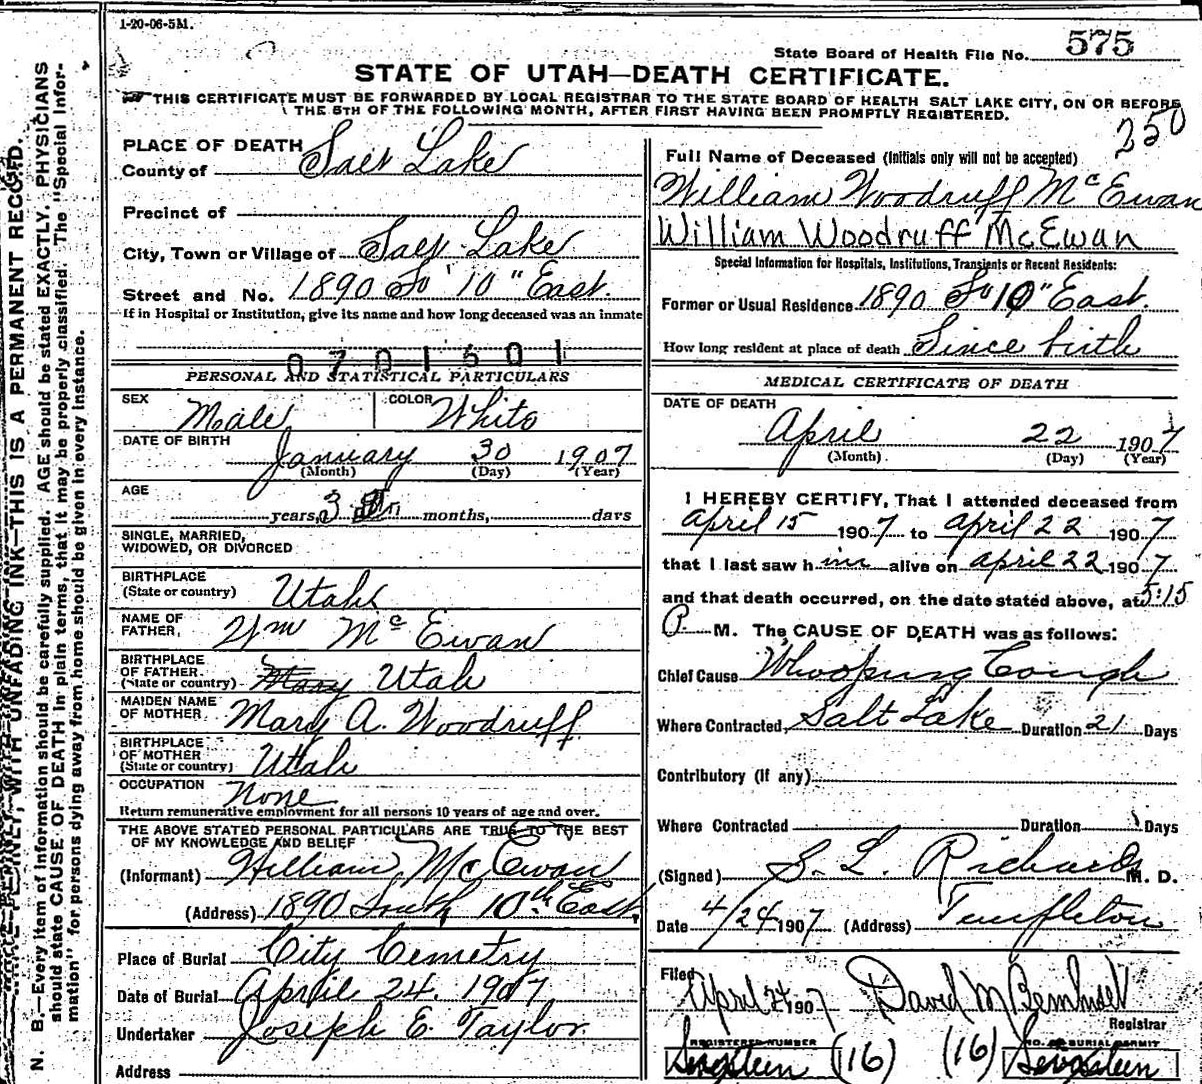 1-20-06-5M.
State Board of Health File No. 575
STATE OF UTAH—DEATH CERTIFICATE.
THIS CERTIFICATE MUST BE FORWARDED BY LOCAL REGISTRAR TO THE STATE BOARD OF HEALTH SALT LAKE CITY, ON OR BEFORE
THE 5TH OF THE FOLLOWING MONTH, AFTER FIRST HAVING BEEN PROMPTLY REGISTERED.
250
PLACE OF DEATH
County of Salt Lake
Precinct of
City, Town or Village of Salt Lake
Street and No. 1890 So 10" East.
If in Hospital or Institution, give its name and how long deceased was an inmate
0701501
PERSONAL AND STATISTICAL PARTICULARS
SEX Male COLOR White
DATE OF BIRTH
January 30 1907
(Month) (Day) (Year)
AGE
years, 3 months, days
SINGLE, MARRIED,
WIDOWED, OR DIVORCED
BIRTHPLACE
(State or country) Utah
NAME OF
FATHER, Wm McEwan
BIRTHPLACE
OF FATHER
(State or country) Mary Utah
MAIDEN NAME
OF MOTHER Mary A. Woodruff
BIRTHPLACE
OF MOTHER
(State or country) Utah
OCCUPATION None
Return remunerative employment for all persons 10 years of age and over.
THE ABOVE STATED PERSONAL PARTICULARS ARE TRUE TO THE BEST
OF MY KNOWLEDGE AND BELIEF
(Informant) William McEwan
(Address) 1890 South 10th East
Place of Burial City Cemetry
Date of Burial April 24. 1907
Undertaker Joseph E. Taylor
Address
Full Name of Deceased (Initials only will not be accepted)
William Woodruff McEwan
William Woodruff McEwan
Special Information for Hospitals, Institutions, Transients or Recent Residents:
Former or Usual Residence 1890 So 10" East.
How long resident at place of death Since birth
MEDICAL CERTIFICATE OF DEATH
DATE OF DEATH
April 22 1907
(Month) (Day) (Year)
I HEREBY CERTIFY, That I attended deceased from
April 15 1907 to April 22 1907
that I last saw him alive on April 22 1907
and that death occurred, on the date stated above, at 5:15
P M. The CAUSE OF DEATH was as follows:
Chief Cause Whooping Cough
Where Contracted Salt Lake Duration 21 Days
Contributory (If any)
Where Contracted Duration Days
(Signed) S. L. Richards M. D.
Date 4/24 1907 (Address) Templeton
Filed
April 24 1907 David M
Registrar
REGISTERED NUMBER NO. OF BURIAL PERMIT
(16) (16)
N. B.—Every item of information should be carefully supplied. AGE should be stated EXACTLY. PHYSICIANS
should state CAUSE OF DEATH in plain terms, that it may be properly classified. The "Special Infor-
mation" for persons dying away from home should be given in every instance.
WRITE PLAINLY, WITH UNFADING INK—THIS IS A PERMANENT RECORD.